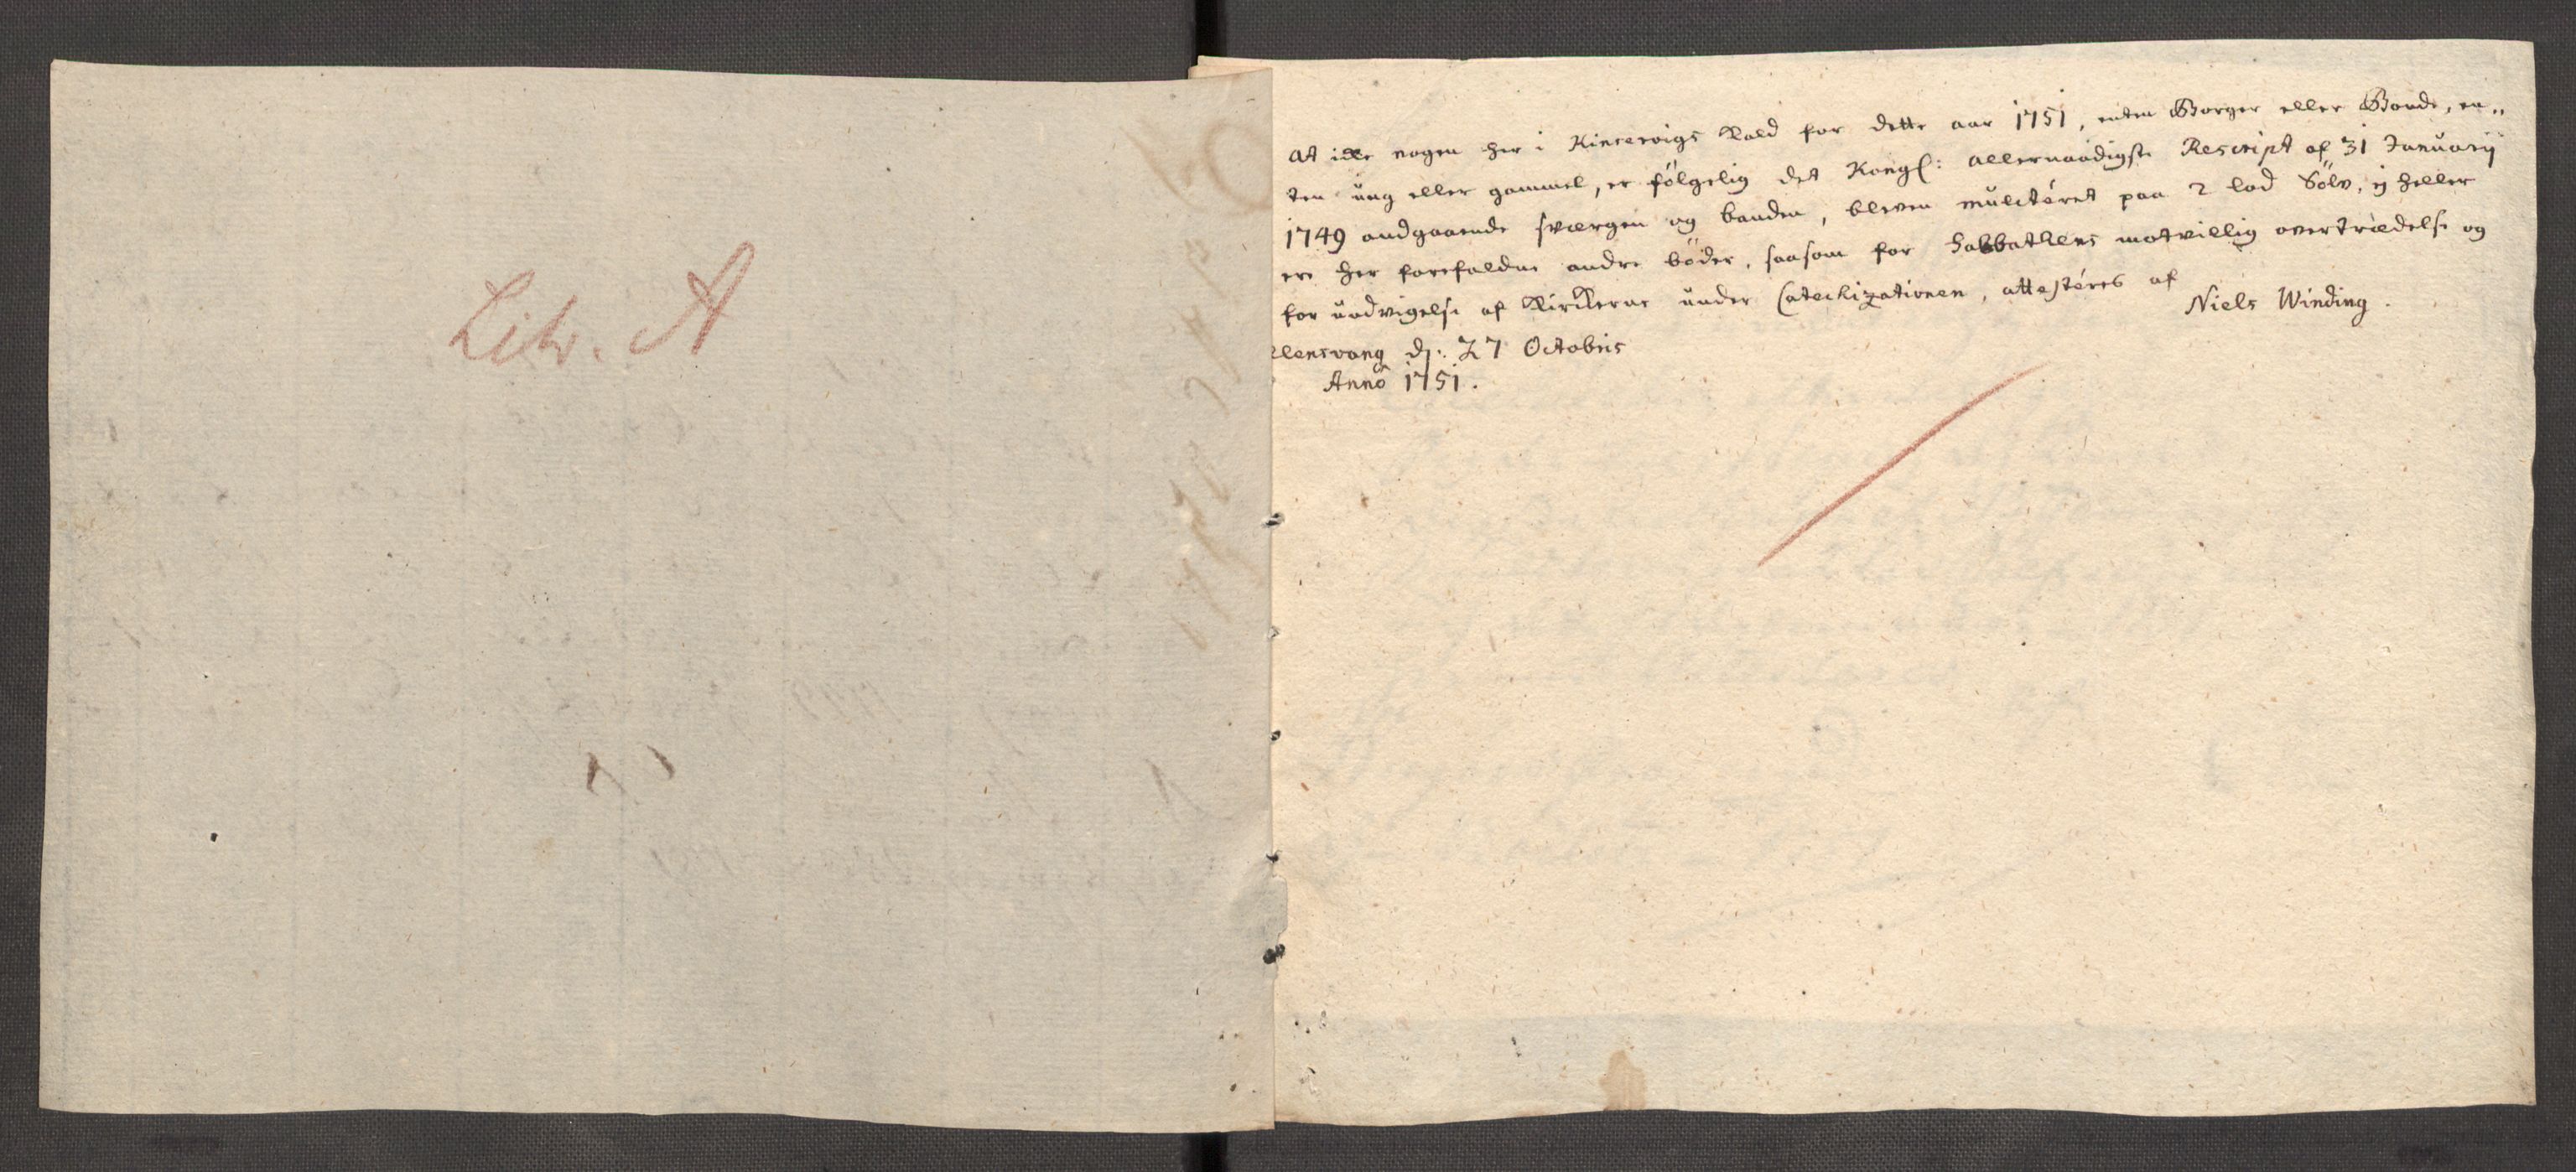 Litr. A
At icke nogen her i Kincervigs Kald for dette aar 1751, enten Borger eller Bonde, en„
ten ung eller gammel, er følgelig det Kongl: allernaadigste Rescript af 31 Januarij
1749 andgaaende sværgen og banden, bleven mulcteret paa 2 lod Sølv, ej heller
ere her forefaldne andre bøder, saasom for Sabbathens motvillig overtrædelse og
for undvigelse af Kirkerne under Catechizationen, attesteres af
Niels Winding.
llensvang dj: 27 Octobris
Annô 1751.